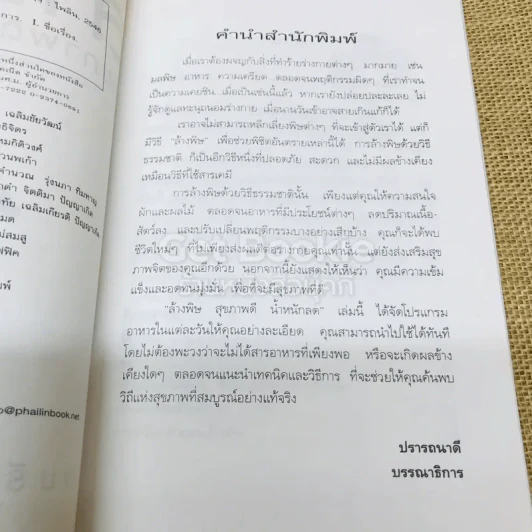 : ไพลิน. 2546
การ. I. ชื่อเรื่อง.
หนึ่งส่วนใดของหนังสือ
คนิค จำกัด
ผู้อำนวยการ
เฉลิมชัยวัฒน์
วนพเก้า
เฉลิมเกียรติ ปัญญาเกิด
@phailinbook.net
คำนำสำนักพิมพ์
เมื่อเราต้องผจญกับสิ่งที่ทำร้ายร่างกายต่างๆ มากมาย เช่น
มลพิษ อาหาร ความเครียด ตลอดจนพฤติกรรมผิดๆ ที่เราทำจน
เป็นความเคยชิน...เมื่อเป็นเช่นนี้แล้ว หากเรายังปล่อยปละละเลย ไม่
รู้จักดูแลทะนุถนอมร่างกาย เมื่อนานวันเข้าอาจสายเกินแก้ก็ได้
เราอาจไม่สามารถหลีกเลี่ยงพิษต่างๆ ที่จะเข้าสู่ตัวเราได้ แต่ก็
มีวิธี "ล้างพิษ" เพื่อช่วยพิชิตอันตรายเหล่านี้ได้ การล้างพิษด้วยวิธี
ธรรมชาติ ก็เป็นอีกวิธีหนึ่งที่ปลอดภัย สะดวก และไม่มีผลข้างเคียง
เหมือนวิธีที่ใช้สารเคมี
การล้างพิษด้วยวิธีธรรมชาตินั้น เพียงแต่คุณให้ความสนใจ
ผักและผลไม้ ตลอดจนอาหารที่มีประโยชน์ต่างๆ ลดปริมาณเนื้อ-
สัตว์ลง และปรับเปลี่ยนพฤติกรรมบางอย่างเสียบ้าง คุณก็จะได้พบ
ชีวิตใหม่ๆ ที่ไม่เพียงส่งผลดีต่อร่างกายคุณเท่านั้น แต่ยังส่งเสริมสุข
ภาพจิตของคุณอีกด้วย นอกจากนี้ยังแสดงให้เห็นว่า คุณมีความเข้ม
แข็งและอดทนมุ่งมั่น เพื่อที่จะมีสุขภาพที่ดี
"ล้างพิษ สุขภาพดี น้ำหนักลด" เล่มนี้ ได้จัดโปรแกรม
อาหารในแต่ละวันให้คุณอย่างละเอียด คุณสามารถนำไปใช้ได้ทันที
โดยไม่ต้องพะวงว่าจะไม่ได้สารอาหารที่เพียงพอ หรือจะเกิดผลข้าง
เคียงใดๆ ตลอดจนแนะนำเทคนิคและวิธีการ ที่จะช่วยให้คุณค้นพบ
วิถีแห่งสุขภาพที่สมบูรณ์อย่างแท้จริง
ปรารถนาดี
บรรณาธิการ